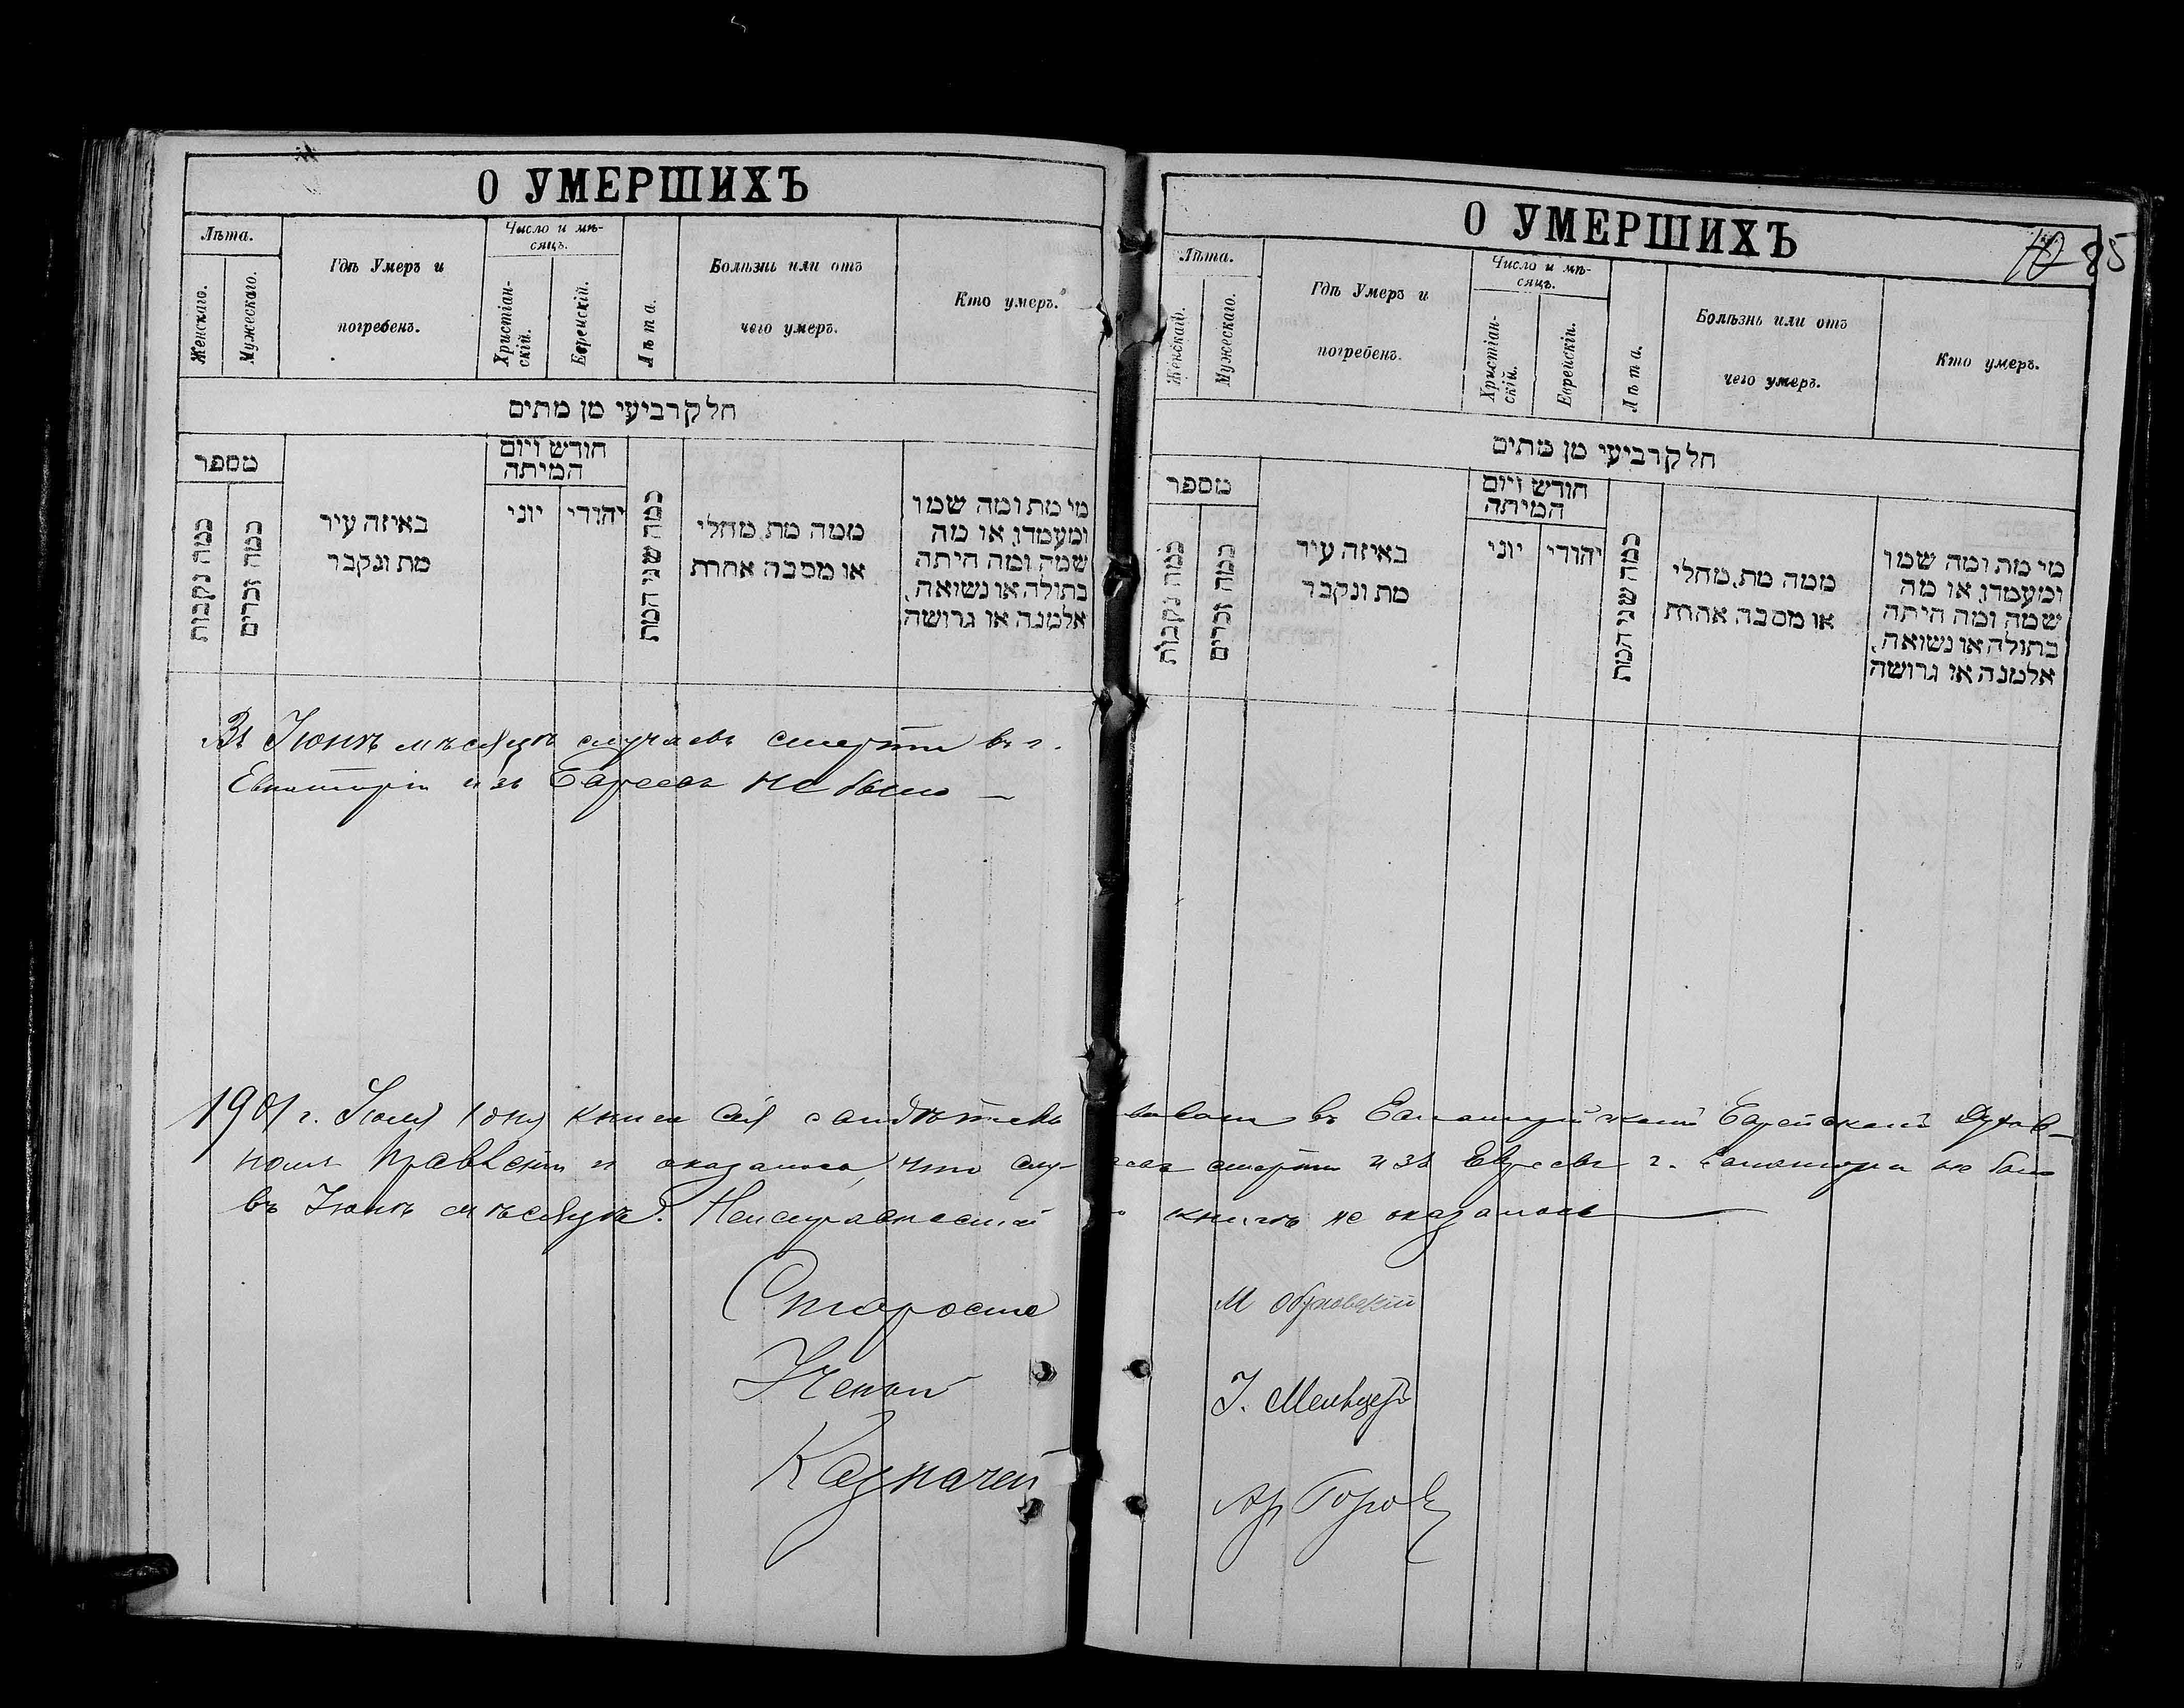 О УМЕРШИХЪ
Лѣта.
Женскаго.
Мужескаго.
Гдѣ Умеръ и
погребенъ.
Число и мѣ-
сяцъ.
Христіан-
скій.
Еврейскій.
Лѣта.
Болѣзнь или отъ
чего умеръ.
Кто умеръ.
חלק רביעי מן מתים
מספר
כמה נקבות
כמה זכרים
באיזה עיר
מת ונקבר
חודש ויום
המיתה
יוני
יהודי
כמה שני המת
ממה מת מחלי
או מסבה אחרת
מי מת ומה שמו
ומעמדו, או מה
שמה ומה היתה
בתולה או נשואה,
אלמנה או גרושה
Въ Іюнѣ мѣсяцѣ случаевъ смерти въ г.
Евпаторіи изъ Евреевъ не было —
О УМЕРШИХЪ
10 85
Лѣта.
Женскаго.
Мужескаго.
Гдѣ Умеръ и
погребенъ.
Число и мѣ-
сяцъ.
Христіан-
скій.
Еврейскій.
Лѣта.
Болѣзнь или отъ
чего умеръ.
Кто умеръ.
חלק רביעי מן מתים
מספר
כמה נקבות
כמה זכרים
באיזה עיר
מת ונקבר
חודש ויום
המיתה
יוני
יהודי
כמה שני המת
ממה מת מחלי
או מסבה אחרת
מי מת ומה שמו
ומעמדו, או מה
שמה ומה היתה
בתולה או נשואה,
אלמנה או גרושה
1901 г. Іюля дня книга сія свидѣтель ствована въ Евпаторійскомъ Еврейскомъ Духов-
номъ Правленіи и оказалось, что случаевъ смерти изъ Евреевъ г. Евпаторіи не было
въ Іюнѣ мѣсяцѣ. Неисправностей книгѣ не оказалось
Староста
Ученый
І. Мельцеръ
Казначей